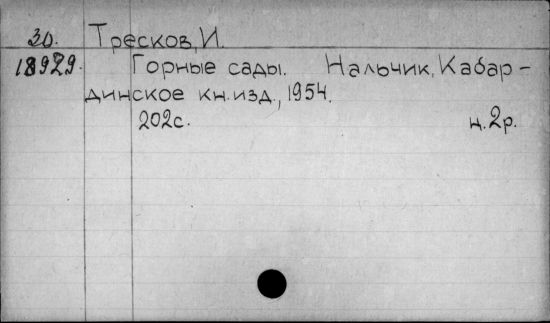 30. Тресков, И.
18929. Горные сады. Нальчик, Кабар-
динское кн.изд., 1954.
202с. ц.2р.